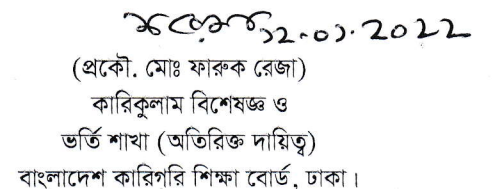 12.01.2022
(প্রকৌ. মোঃ ফারুক রেজা)
কারিকুলাম বিশেষজ্ঞ ও
ভর্তি শাখা (অতিরিক্ত দায়িত্ব)
বাংলাদেশ কারিগরি শিক্ষা বোর্ড, ঢাকা।